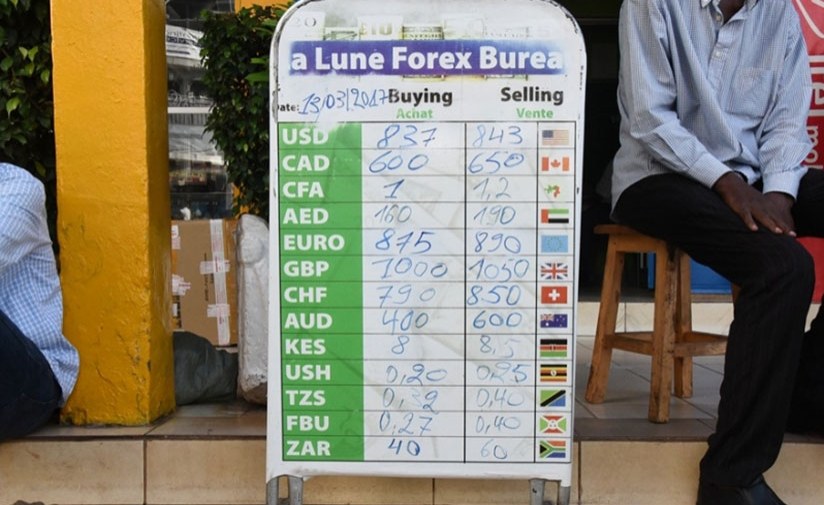 a Lune Forex Burea
Date: 13/03/2017 Buying Selling
Achat Vente
USD 837 843
CAD 600 650
CFA 1 1,2
AED 160 190
EURO 875 890
GBP 1000 1050
CHF 790 850
AUD 400 600
KES 8 8,5
USH 0,20 0,25
TZS 0,32 0,40
FBU 0,27 0,40
ZAR 40 60